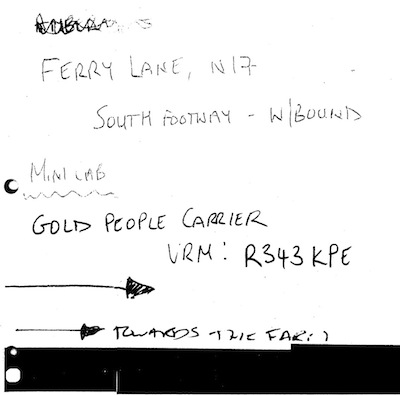 FERRY LANE, N17
SOUTH FOOTWAY - W/BOUND
MINI CAB
GOLD PEOPLE CARRIER
VRM: R343 KPE
TOWARDS THE